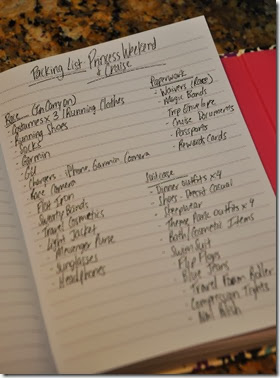 Packing List Princess Weekend
+ Cruise
Race (In Carry on)
- Costumes x 3 / Running Clothes
- Running Shoes
- Socks
- Garmin
- GU
- Chargers: iPhone, Garmin, Camera
- Race Camera
- Flat Iron
- Sweaty Bands
- Travel Cosmetics
- Light Jacket
- Messenger Purse
- Sunglasses
- Headphones
Paperwork
- Waivers (Race)
- Magic Bands
- Trip Envelope
- Cruise Documents
- Passports
- Rewards Cards
Suitcase
- Dinner outfits x 4
- Shoes: Casual
- Sleepwear
- Theme Park outfits x 4
- Bath/Cosmetic Items
- Swim Suit
- Flip Flops
- Blue Jeans
- Travel Foam Roller
- Compression Tights
- Nail Polish